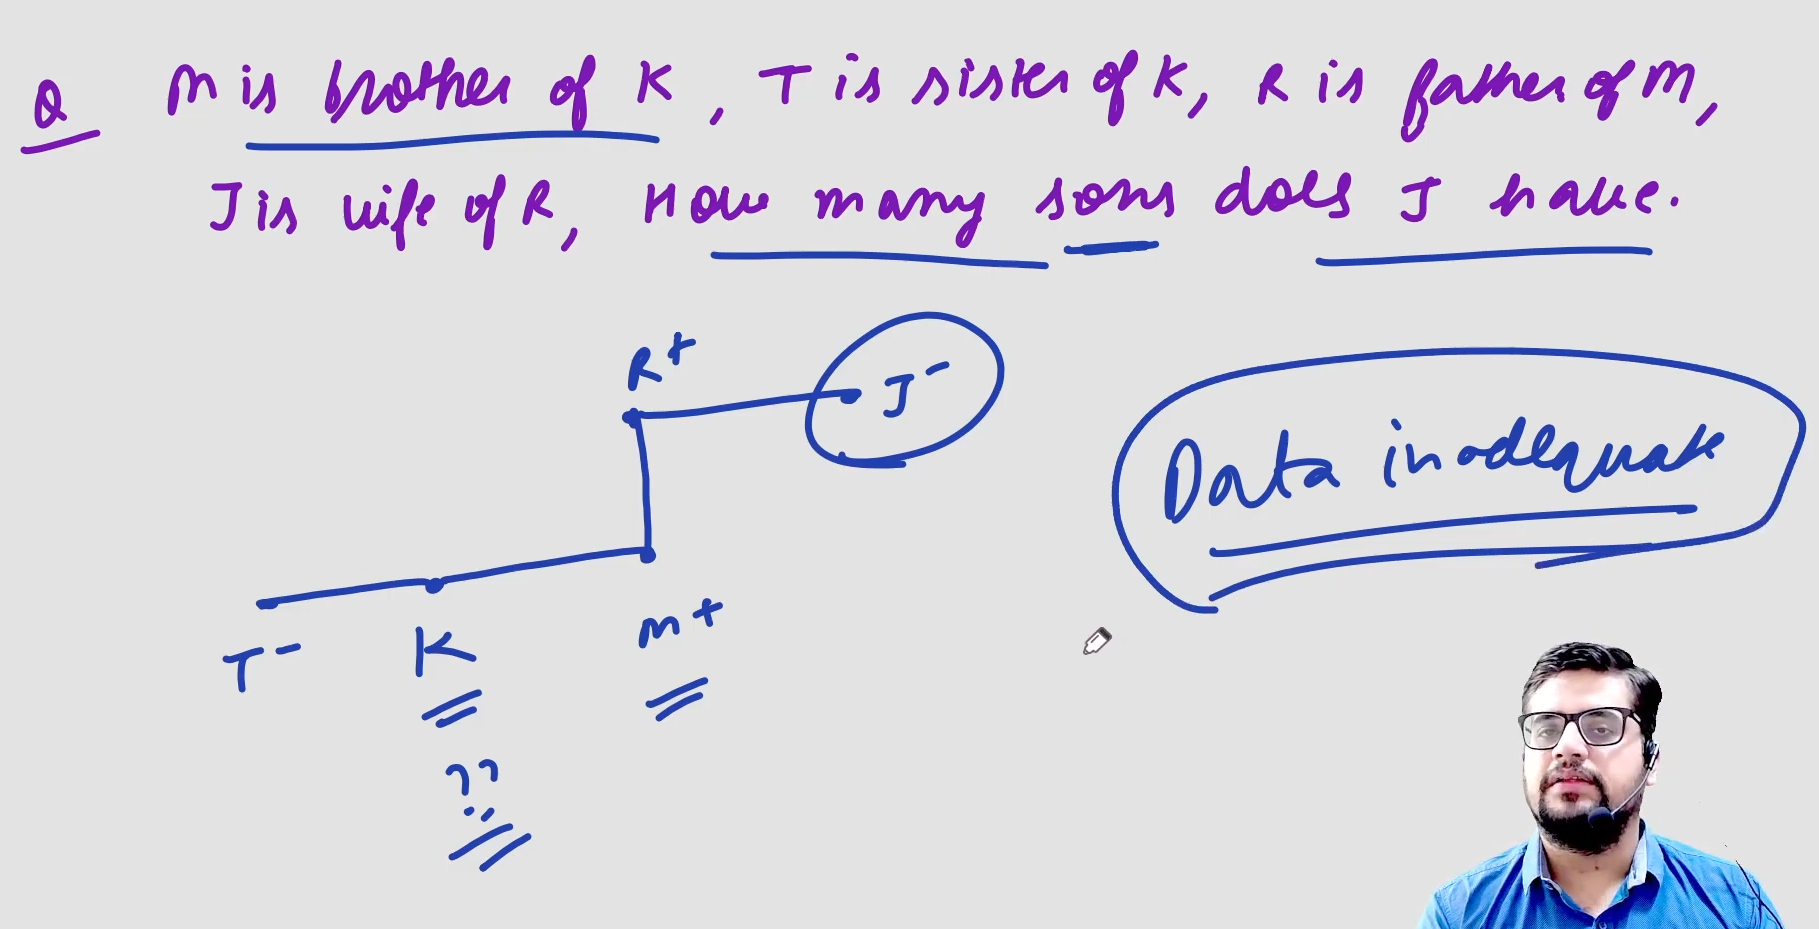 Q M is brother of K, T is sister of K, R is father of M,
J is wife of R, How many sons does J have.
R+
J-
Data inadequate
T- K M+
??